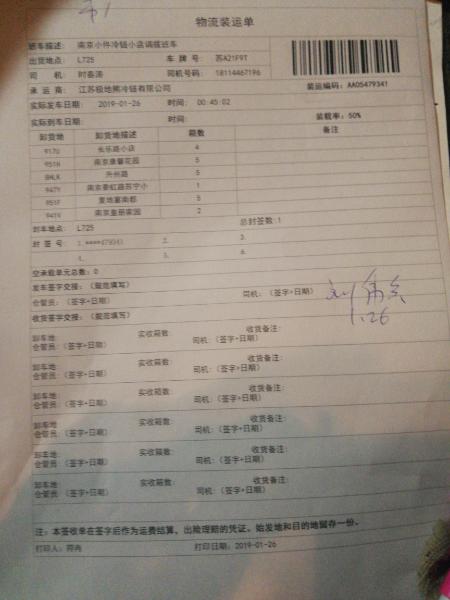 物流装运单
班车描述: 南京小件冷链小店调拨班车
出货地点: L725 车 牌 号: 苏A21F9T
司 机: 时春涛 司机号码: 18114467196
承 运 商: 江苏极地熊冷链有限公司 装运编码: AA05479341
实际发车日期: 2019-01-26 时间: 00:45:02
实际到车日期: 时间: 装载率: 50%
卸货地 卸货地描述 箱数 备注
917U 长乐路小店 4
951H 南京康馨花园 5
8HLK 升州路 5
947Y 南京菱虹路苏宁小 1
951F 复地宴南都 5
941V 南京皇册家园 2
封车地点: L725 总封签数:1
封 签 号: 1.****479341 2. 3.
4. 5. 6.
空承载单元总数: 0
发车签字交接: (规范填写)
仓管员: (签字+日期) 司机: (签字+日期)
1.26
收货签字交接: (规范填写)
卸车地: 实收箱数: 收货备注:
仓管员: (签字+日期) 司机: (签字+日期)
卸车地: 实收箱数: 收货备注:
仓管员: (签字+日期) 司机: (签字+日期)
卸车地: 实收箱数: 收货备注:
仓管员: (签字+日期) 司机: (签字+日期)
卸车地: 实收箱数: 收货备注:
仓管员: (签字+日期) 司机: (签字+日期)
卸车地: 实收箱数: 收货备注:
仓管员: (签字+日期) 司机: (签字+日期)
卸车地: 实收箱数: 收货备注:
仓管员: (签字+日期) 司机: (签字+日期)
注: 本签收单在签字后作为运费结算、出险理赔的凭证, 始发地和目的地留存一份。
打印人: 符冉 打印日期: 2019-01-26